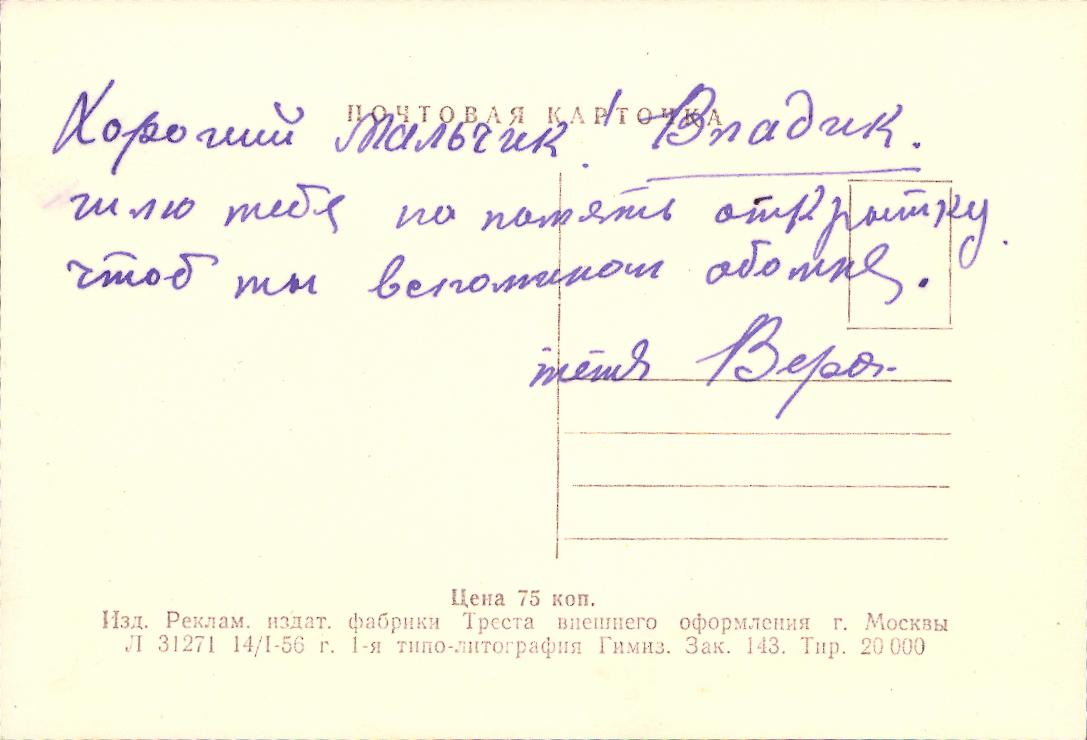 ПОЧТОВАЯ КАРТОЧКА
Хороший Мальчик! Владик.
шлю тебя на помять открытку.
чтоб ты вспоминал обомне.
тётя Вера.
Цена 75 коп.
Изд. Реклам. издат. фабрики Треста внешнего оформления г. Москвы
Л 31271 14/I-56 г. 1-я типо-литография Гимиз. Зак. 143. Тир. 20 000